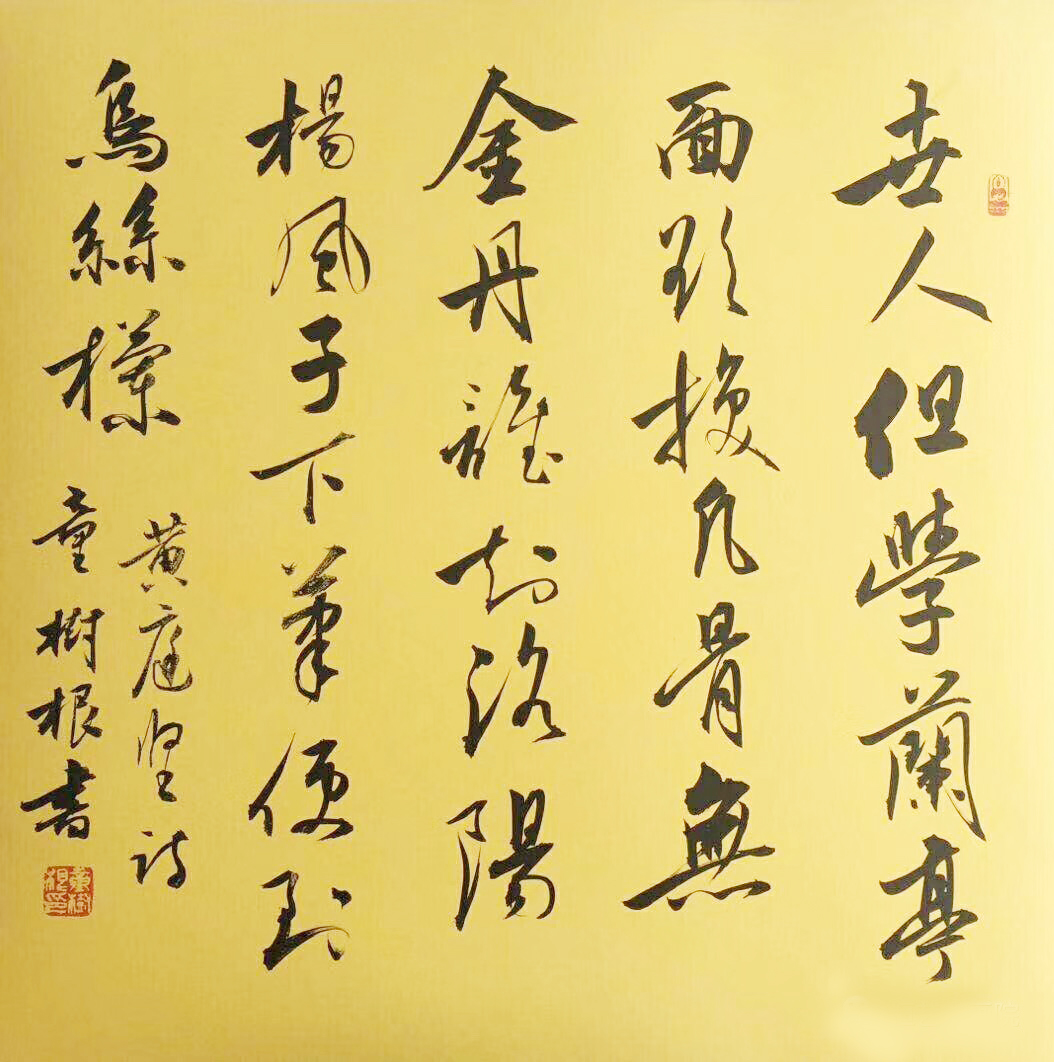 世人但學蘭亭
面欲換凡骨無
金丹誰知洛陽
楊風子下筆便到
烏絲欄
黄庭坚诗
童樹根書
童樹根印